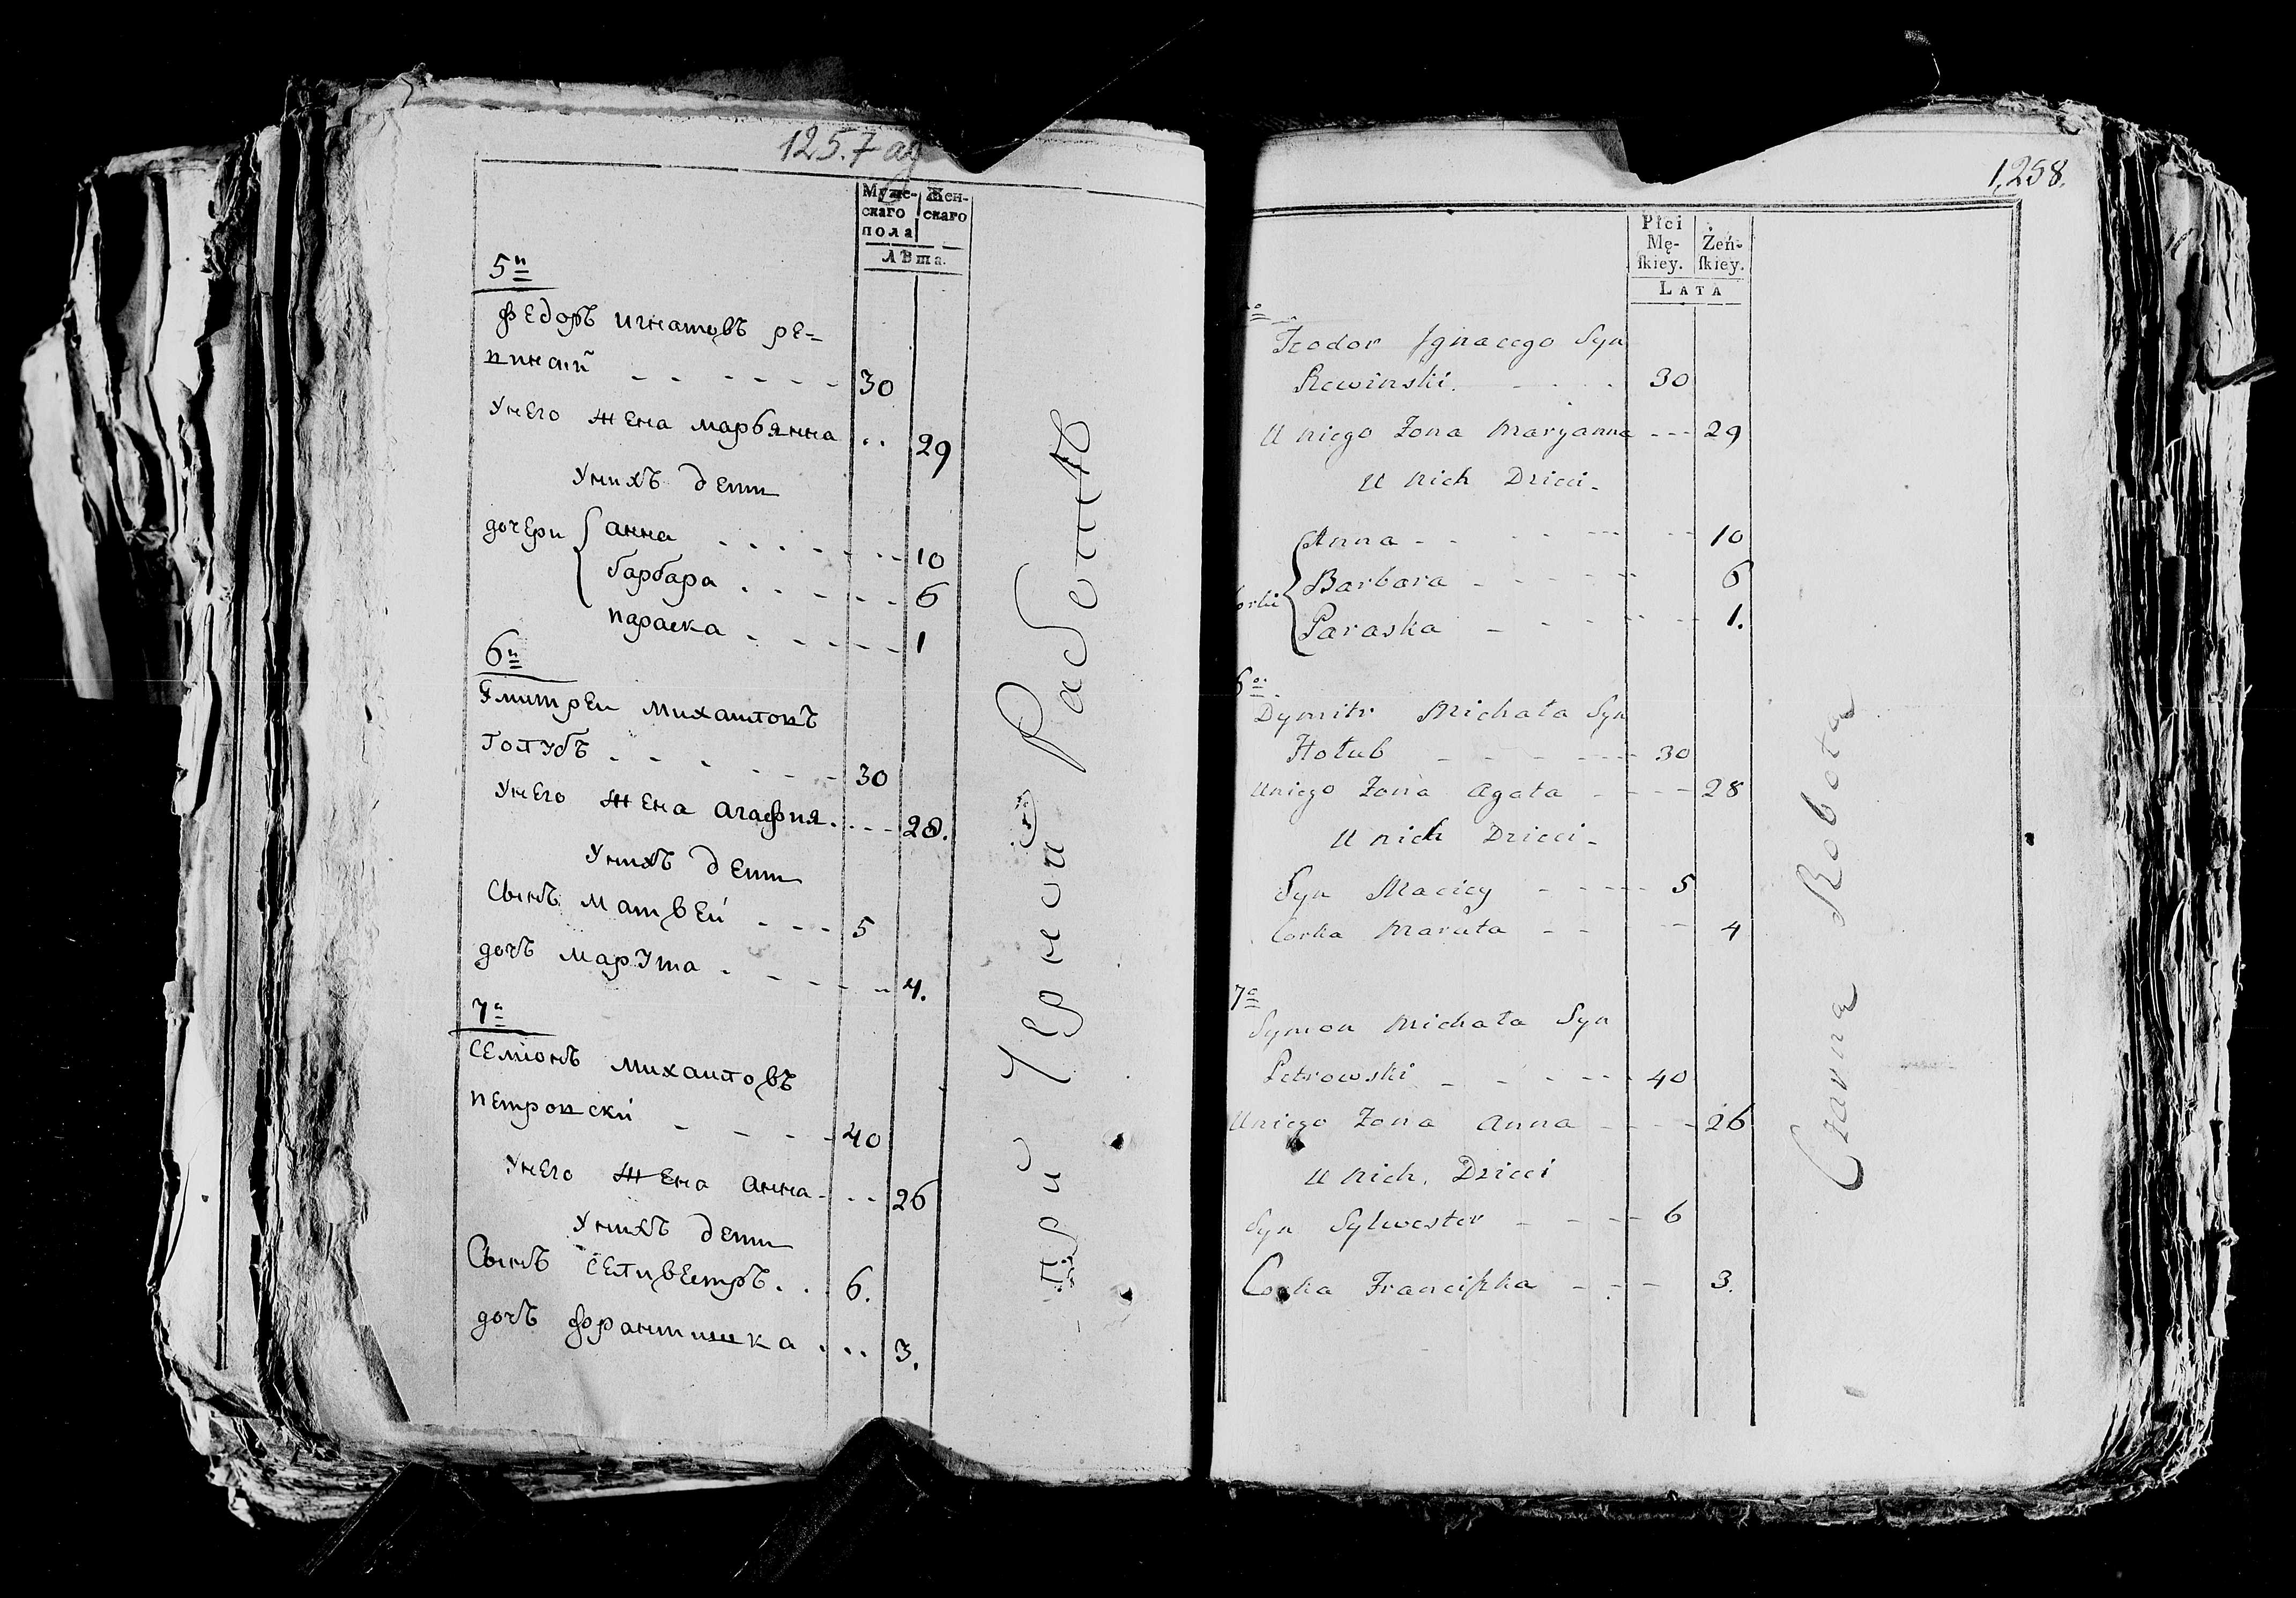 125.7 об
Муже-
скаго
пола
Жен-
скаго
Лѣта.
5й
федоръ игнатовъ ре-
винский 30
унего жена марьянна 29
унихъ дети
дочери анна 10
барбара 6
параска 1
6й
дмитреи михаиловъ
голубъ 30
унего жена агафия 28.
унихъ дети
Сынъ матвей 5
дочь марута 4.
7й
семионъ михаиловъ
петровски 40
унего жена анна 26
унихъ дети
Сынъ селивестръ 6.
дочь франтишка 3.
при Черной Работѣ
1,258.
Płci
Mę-
ſkiey.
Żeń-
ſkiey.
LATA
Teodor Ignacego Syn
Rewinski 30
U niego Żona Maryanna 29
U nich Dzieci
Corki Anna 10
Barbara 6
Paraska 1.
6o
Dymitr Michała Syn
Hołub 30
Uniego Żona Agata 28
U nich Dzieci
Syn Maciey 5
Corka Maruta 4
7o
Symon Michała Syn
Petrowski 40
Uniego Żona Anna 26
U nich Dzieci
Syn Sylwester 6
Corka Franciſzka 3.
Czarna Robota